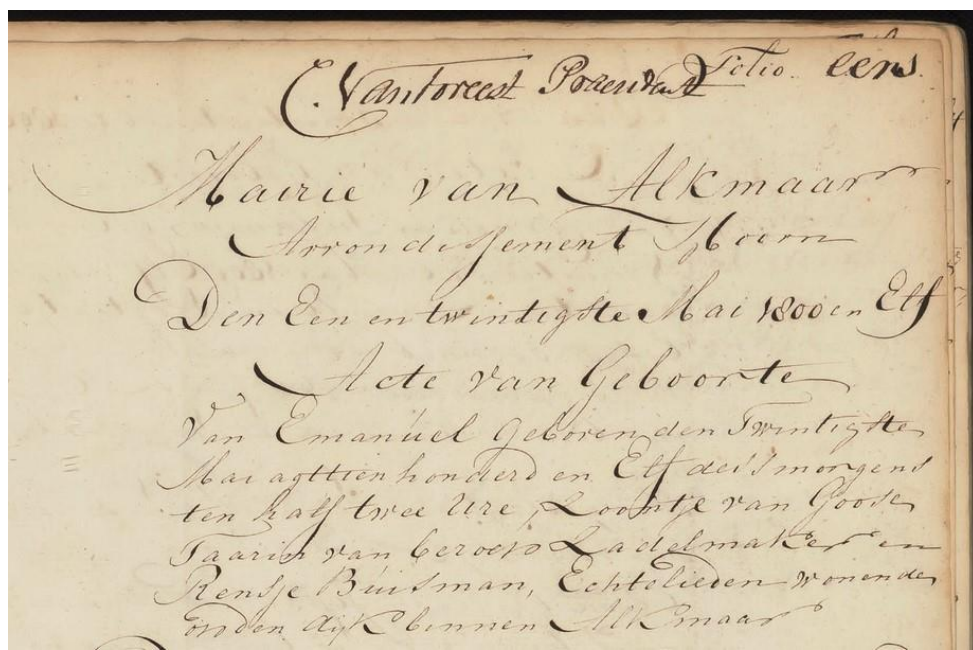 C. Vanforeest President Folio. eens.
Mairie van Alkmaar
Arrondissement Hoorn
Den Een en twintigste Mai 1800 en Elf
Acte van Geboorte
Van Emanuel Geboren den Twintigste
Mai agttien honderd en Elf des's morgens
ten half twee Ure, Zoontje van Goose
Taarin van beroep Zadelmaker en
Rensje Buisman, Echtelieden wonende
op den dyk binnen Alkmaar